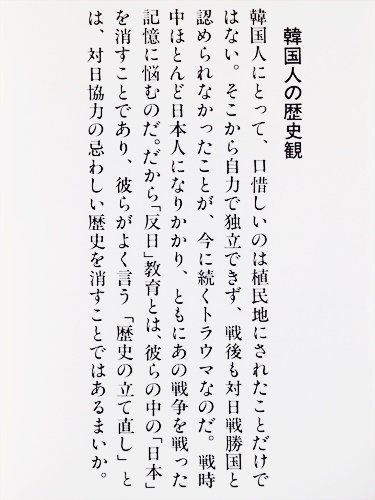 韓国人の歴史観
韓国人にとって、口惜しいのは植民地にされたことだけで
はない。そこから自力で独立できず、戦後も対日戦勝国と
認められなかったことが、今に続くトラウマなのだ。戦時
中ほとんど日本人になりかかり、ともにあの戦争を戦った
記憶に悩むのだ。だから「反日」教育とは、彼らの中の「日本」
を消すことであり、彼らがよく言う「歴史の立て直し」と
は、対日協力の忌わしい歴史を消すことではあるまいか。